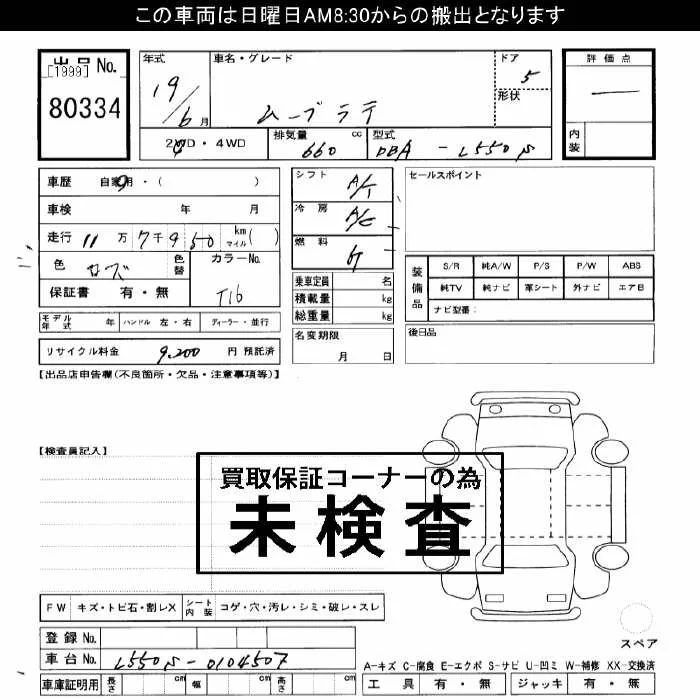 この車両は日曜日AM8:30からの搬出となります
出品No.
[1999]
80334
年式 車名・グレード ドア
19/6月 ムーブラテ 5
形状
評価点
—
内装
2WD・4WD 排気量 660 cc 型式 DBA-L550S
車歴 自家用・( )
車検 年 月
走行 11万7千950 km マイル( )
色 ローズ 色替 カラーNo. T16
保証書 有・無
モデル年式 年 ハンドル 左・右 ディーラー・並行
リサイクル料金 9,200 円 預託済
シフト A/T
冷房 A/C
燃料 G
乗車定員 名
積載量 kg
総重量 kg
名変期限
月 日
セールスポイント
装備品
S/R 純A/W P/S P/W ABS
純TV 純ナビ 革シート 外ナビ エアB
ナビ型番:
後日品
【出品店申告欄(不良箇所・欠品・注意事項等)】
【検査員記入】
買取保証コーナーの為
未検査
FW キズ・トビ石・割レX シート内装 コゲ・穴・汚レ・シミ・破レ・スレ
登録No.
車台No. L550S-0104507
車庫証明用 長さ cm 幅 cm 高さ cm
スペア
A-キズ C-腐食 E-エクボ S-サビ U-凹ミ W-補修 XX-交換済
工具 有・無 ジャッキ 有・無